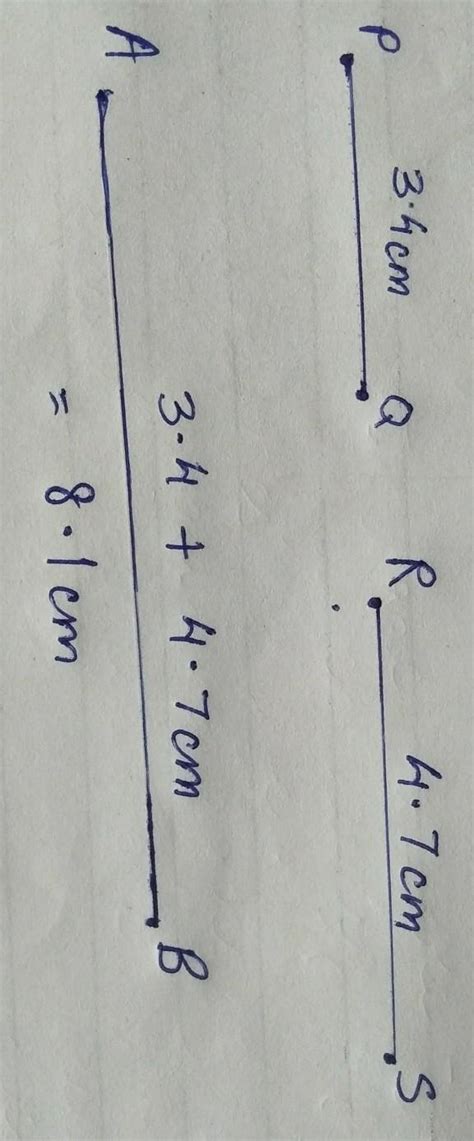 P 3.4cm Q R 4.7cm S
3.4 + 4.7cm
A B
= 8.1cm